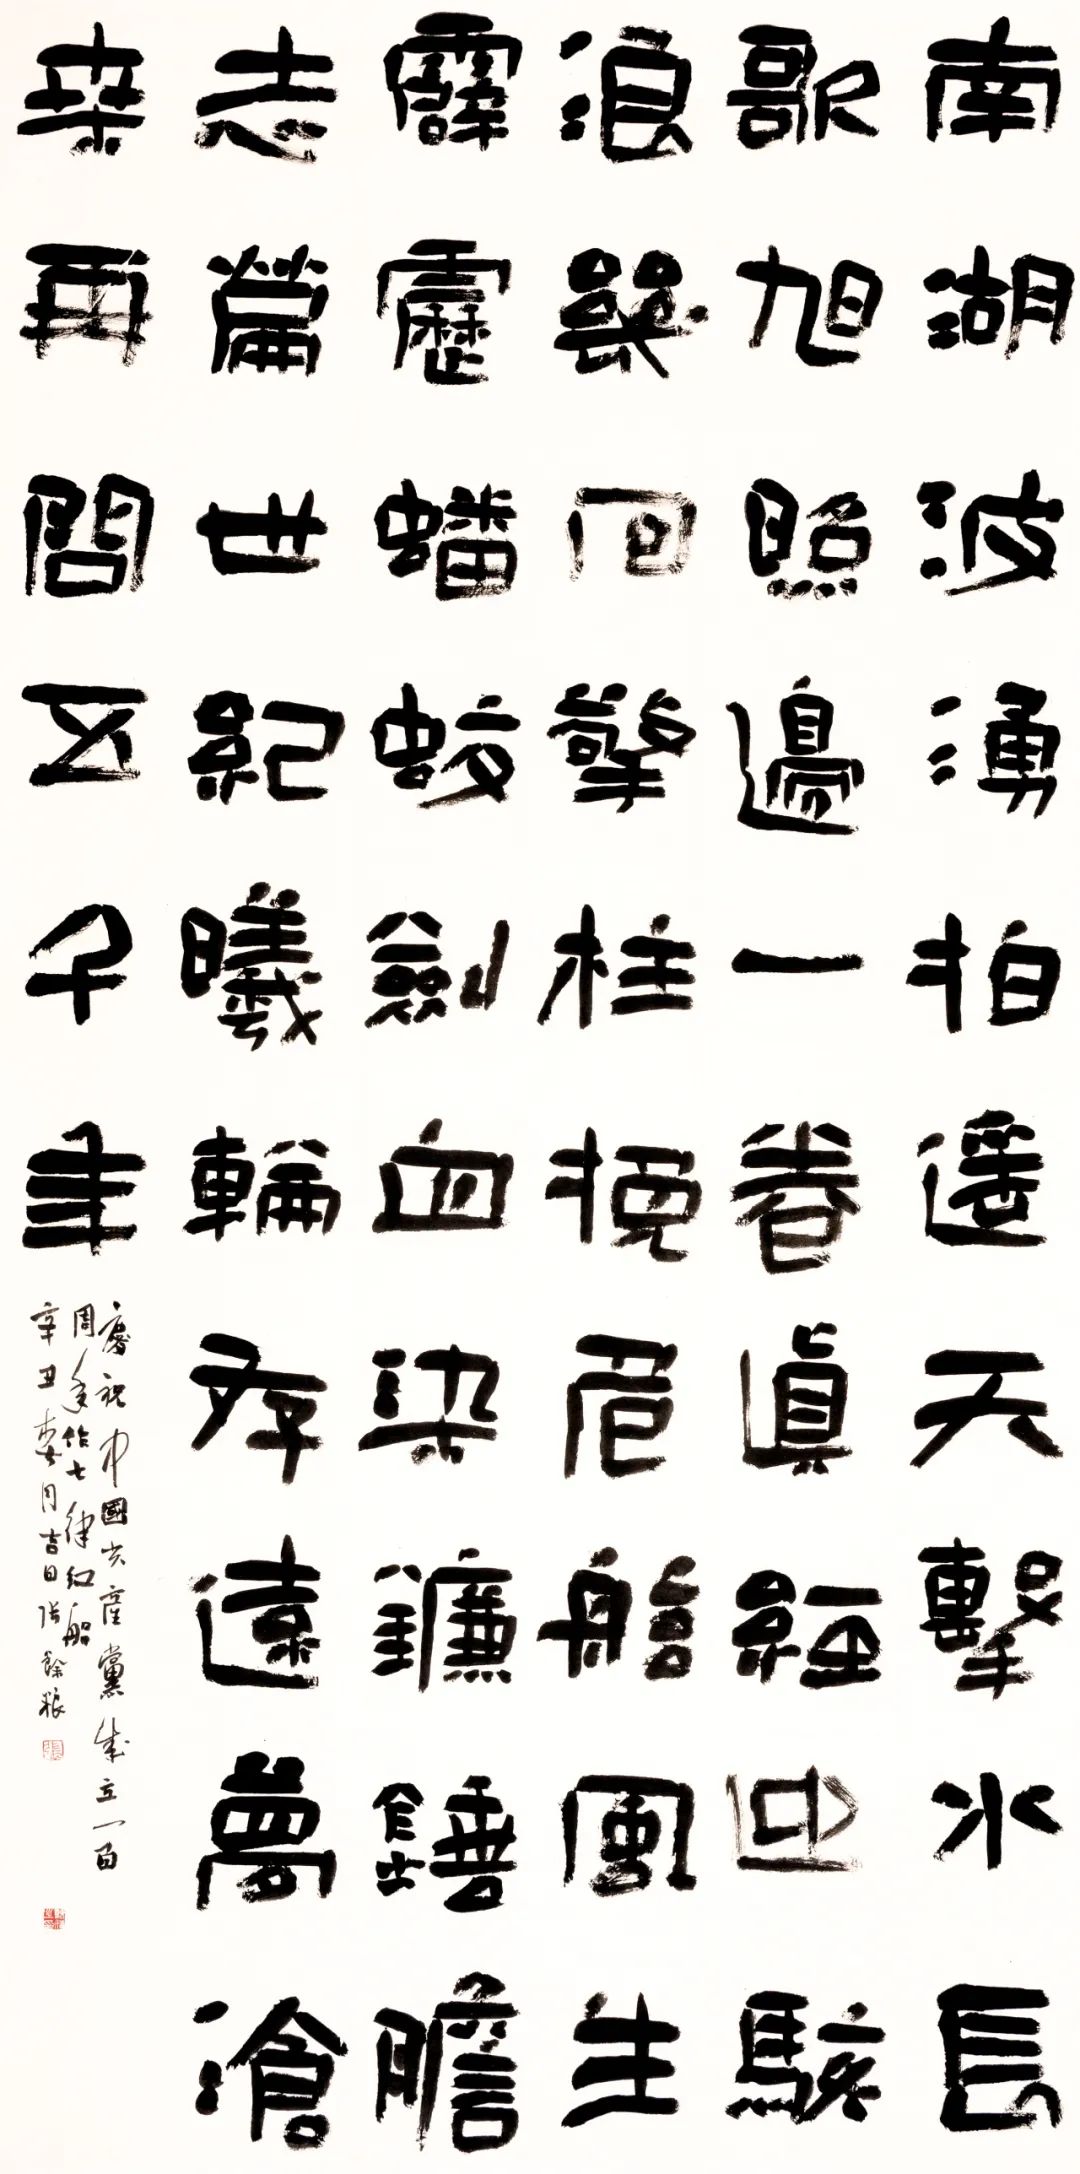 南湖波湧拍遥天擊水長
歌旭照邊一卷眞經迴駭
浪幾回擎柱挽危船風生
霹靂蟠蛟劍血染鐮錘膽
志篇世紀曦輪存遠夢滄
桒再問五千年
慶祝中國共產黨成立一百
周年作七律紅船
辛丑春月吉日張餘粮